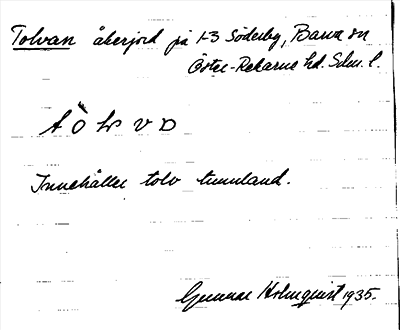 Tolvan åkerjord på 1-3 Söderby, Barva sn
Öster-Rekarne hd. Sdm. l.
Innehåller tolv tunnland.
Gunnar Holmquist 1935.